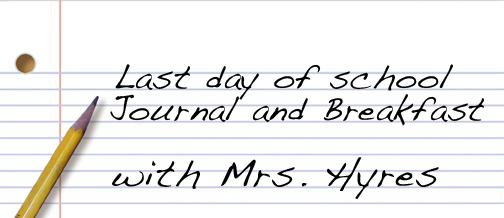 Last day of school
Journal and Breakfast
with Mrs. Hyres